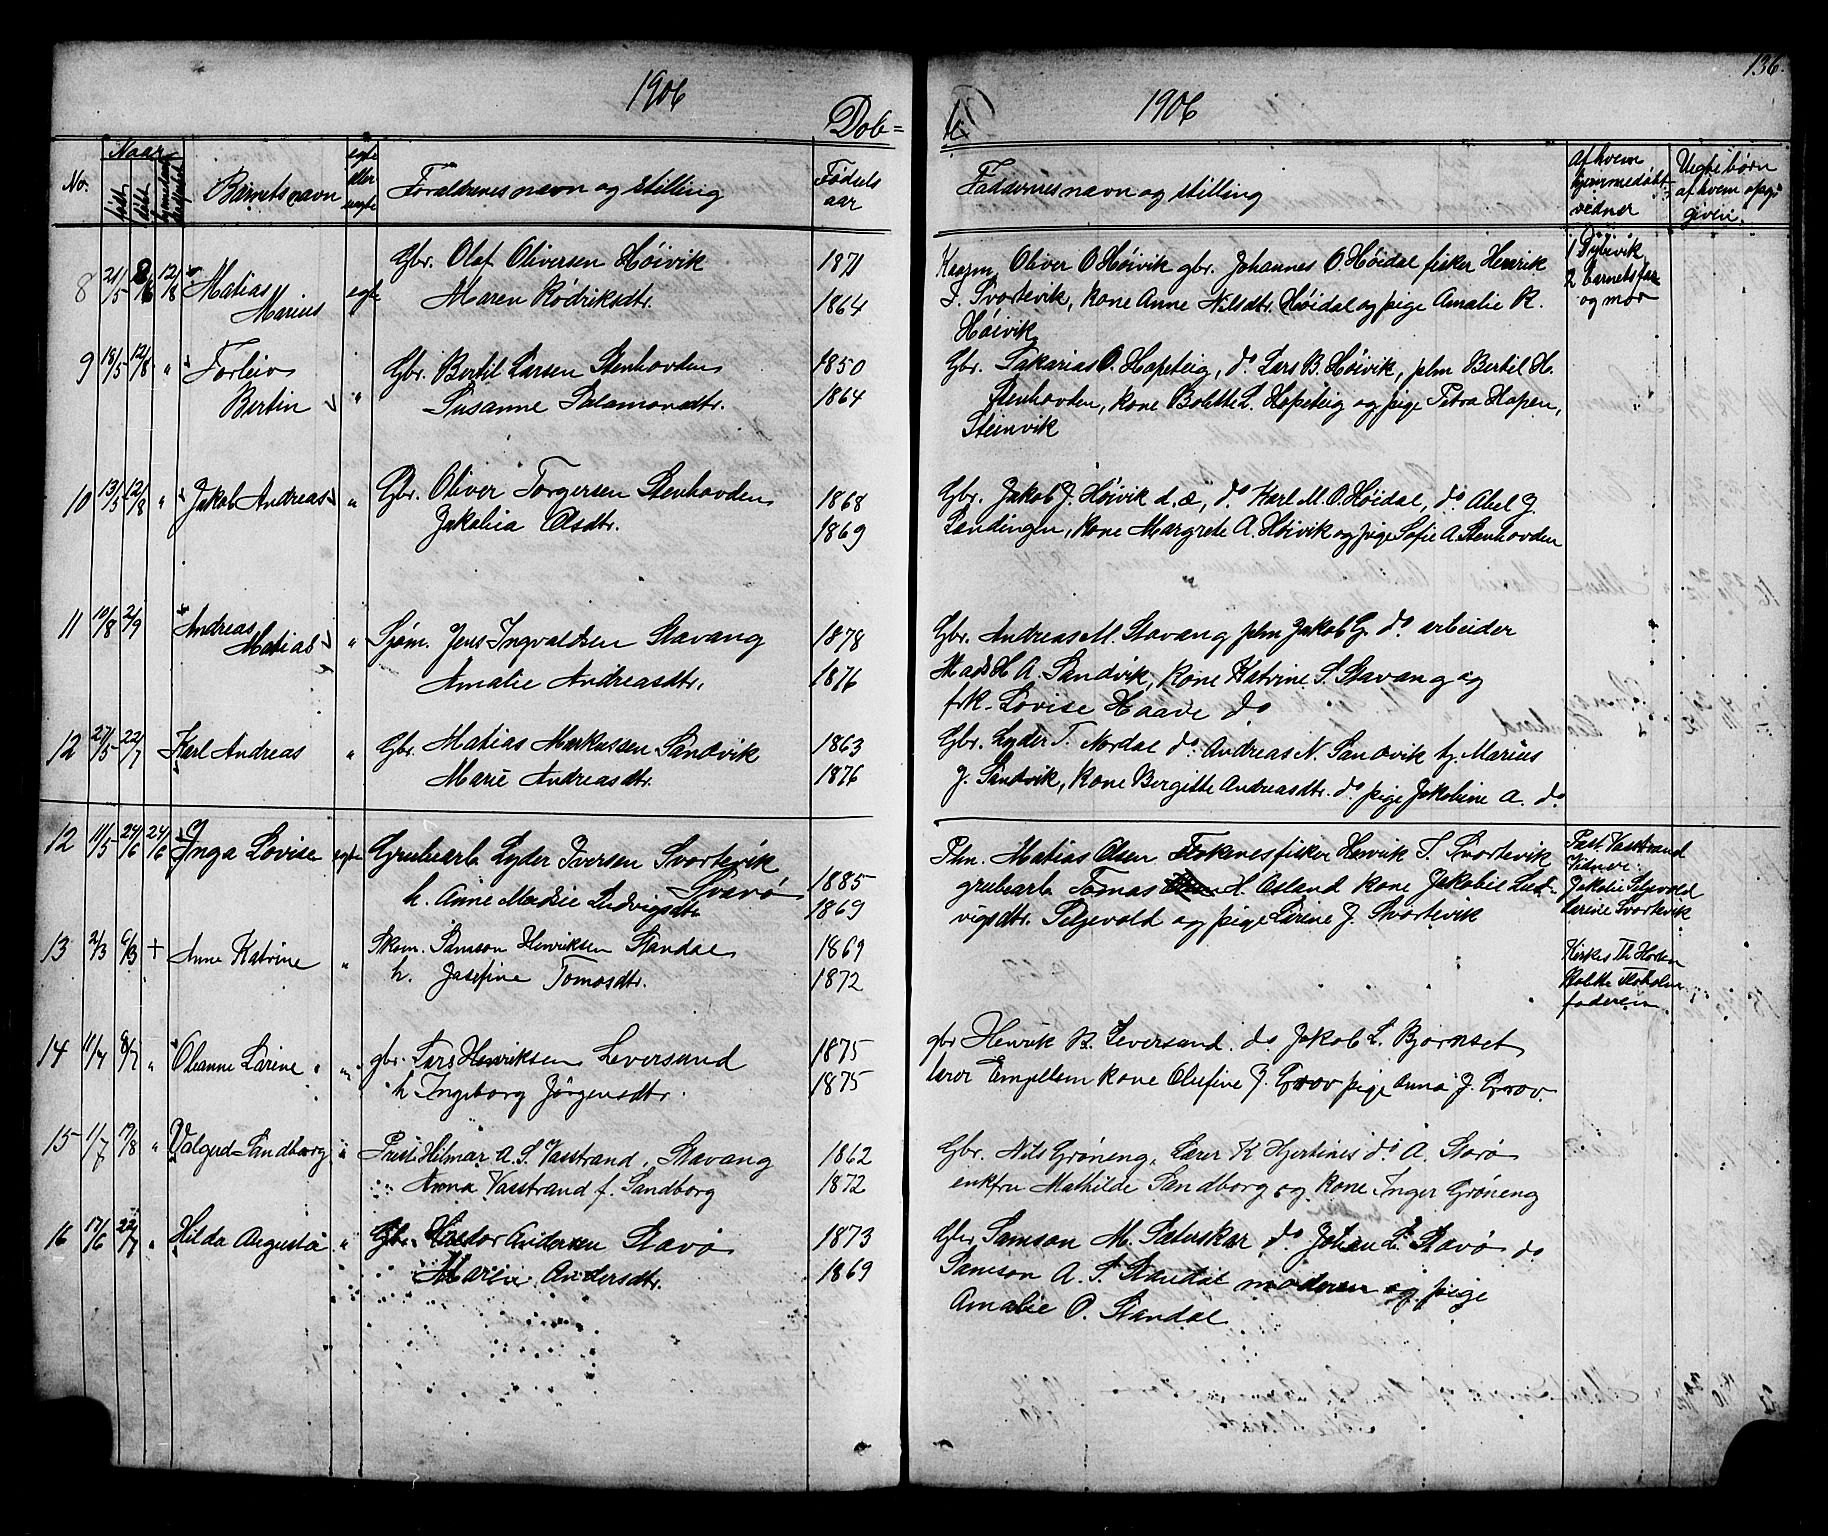 136.
1906
1906
Dob=
No.
Naar
født
døbt
Barnets navn
egte eller uegte
Foraldrenes navn og stilling
Fødsels aar
Faddernes navn og stilling
af hvem hjemmedøbt vidner
Uegte børn af hvem opgiven
8 21/5 12/8 Matias Marius egte Gbr. Olaf Oliversen Høivik 1871 Oliver O Høivik gbr. Johannes O. Høidal fisker Henrik 1 Dybevik
Maren Rødriksdtr. 1864 S. Svortevik, kone Anne Nilsdtr. Høidal og pige Amalie R. 2 barnets far
Høivik og mor
9 18/5 12/8 " Torleiv Gbr. Bertil Larsen Stenhovden 1850 Gbr. Sakarias O. Hopeteig, do Lars B. Høivik, plm Bertil H.
Bertin " Susanne Salamonsdtr. 1864 Stenhovden, kone Bolette L. Hopeteig og pige Petra Hopen,
Steinvik
10 13/5 12/8 " Jakob Andreas " Gbr. Oliver Torgersen Stenhovden 1868 Gbr. Jakob J. Høivik d.æ, do Karl M. O. Høidal, do Abel J.
Jakobia Olsdtr. 1869 Landingen, kone Margrete A. Høivik og pige Sofie A. Stenhovden
11 10/8 2/9 Andreas Matias " Sjøm. Jens Ingvaldsen Stavang 1878 Gbr. Andreas M. Stavang plm Jakob G. do arbeider
Amalie Andreasdtr. 1876 Mads H A. Sandvik, kone Katrine S. Stavang og
frk. Lovise Haave do
12 27/5 22/7 Karl Andreas " Gbr. Matias Markussen Sandvik 1863 Gbr. Lyder T. Nordal do Andreas N. Sandvik tj. Marius
Marie Andreasdtr. 1876 J. Sandvik, kone Bergitte Andreasdtr. do pige Jakobine A. do
12 11/5 24/6 24/6 Inga Lovise egte Grubearb Lyder Iversen Svortevik Plm. Matias Olsen Stokenes fisker Henrik S. Svortevik Past. Vasstrand
Svanø 1885 Vidner:
h. Anne Marie Ludvigsdtr 1869 grubearb Tomas H. Osland kone Jakobie Lud- Jakobie Seljevold
vigsdtr. Seljevold og pige Larine J. Svortevik Larine Svortevik
13 2/3 6/3 + Anne Katrine " Skom. Samson Henriksen Standal 1869 Kirkes. Th Horten
h. Josefine Tomasdtr. 1872 faderen
14 11/4 8/7 " Oleanne Larine " gbr. Lars Henriksen Leversund 1875 gbr Henrik B. Leversund. do Jakob L. Bjørnset
h Ingeborg Jørgensdtr. 1875 lærer Engelsen kone Olufine J. Grov pige Anna J. Grov.
15 11/7 19/8 " Valgerd Sandborg " Prest Hilmar A. S. Vasstrand, Stavang 1862 Gbr. Nils Grøneng, Lærer K Hjertenes do A. Storø
Anna Vasstrand f. Sandborg 1872 enkfru Mathilde Sandborg og kone Inger Grøneng
16 17/6 22/7 " Hilda Augusta " Gbr. Kastor Andersen Stavø 1873 Gbr Samson M. Sæterskar do Johan L. Stavø do
Maria Andersdtr. 1869 Samson A. S. Standal moderen og pige
Amalie O. Standal